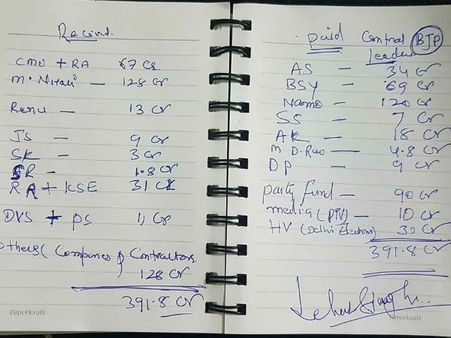 Recived.
CMO + RA 67 Cr
M. Nirani - 128 Cr
Renu - 13 Cr
JS - 9 Cr
SK - 3 Cr
SR - 1.8 Cr
RA + KSE 31 Cr
DVS + PS 11 Cr
Others (Companies & Contractors
128 Cr
391.8 Cr
Paperkraft
Paid Central BJP
Leaders
AS - 34 Cr
BSY - 69 Cr
Namo - 120 Cr
SS - 7 Cr
AK - 18 Cr
M D. Rao - 4.8 Cr
DP - 9 Cr
Party Fund - 90 Cr
media (PIV) - 10 Cr
HV (Delhi Election) 30 Cr
391.8 Cr
Paperkraft